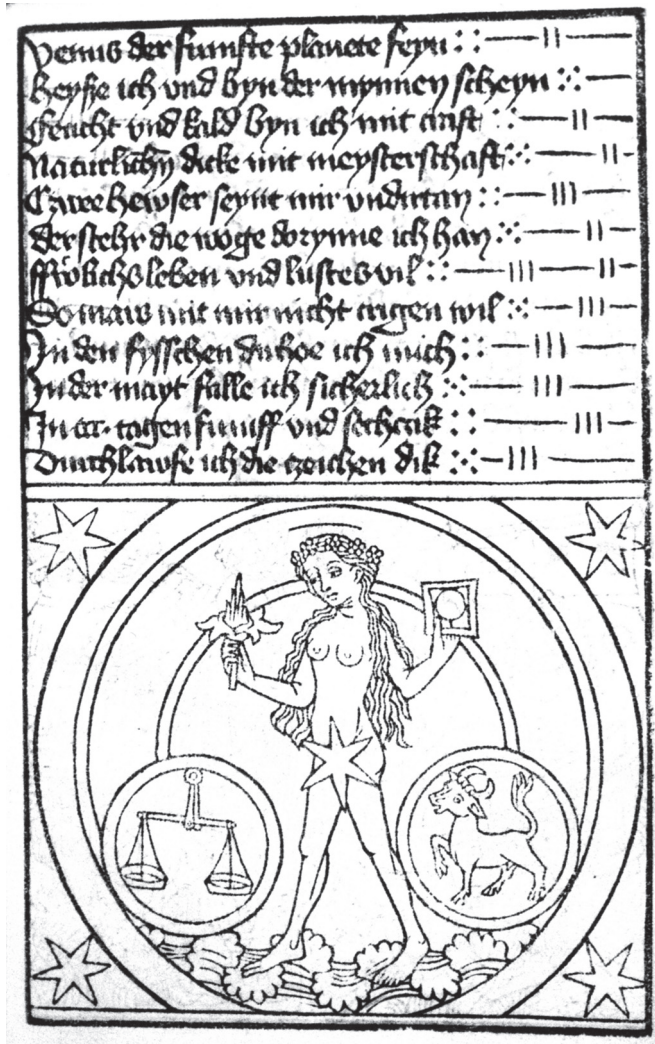 Venus der funfte planete feyn
Heyße ich vnd byn der mynnen scheyn
feucht vnd kald byn ich mit craft
Naturlichn dicke mit meysterschaft
Czwee hewser seynt mir vndirtan
der stehr die woge dorynne ich han
ffrölichs leben vnd lustes vil
So mars mit mir nicht crigen wil
In den fysschen ich mich
In der mayt falle ich sicherlich
In tagen funff vnd sechczik
Durchlawfe ich die czeichen dik